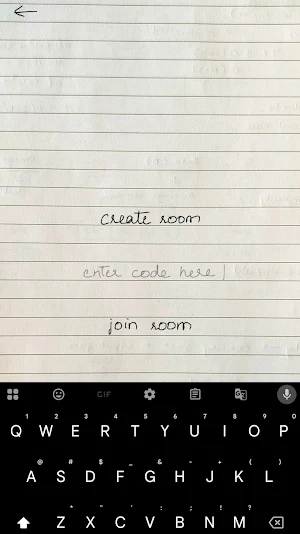 create room
enter code here
join room
GIF
1 2 3 4 5 6 7 8 9 0
Q W E R T Y U I O P
@ # $ _ & - + ( )
A S D F G H J K L
* " ' : ; ! ?
Z X C V B N M